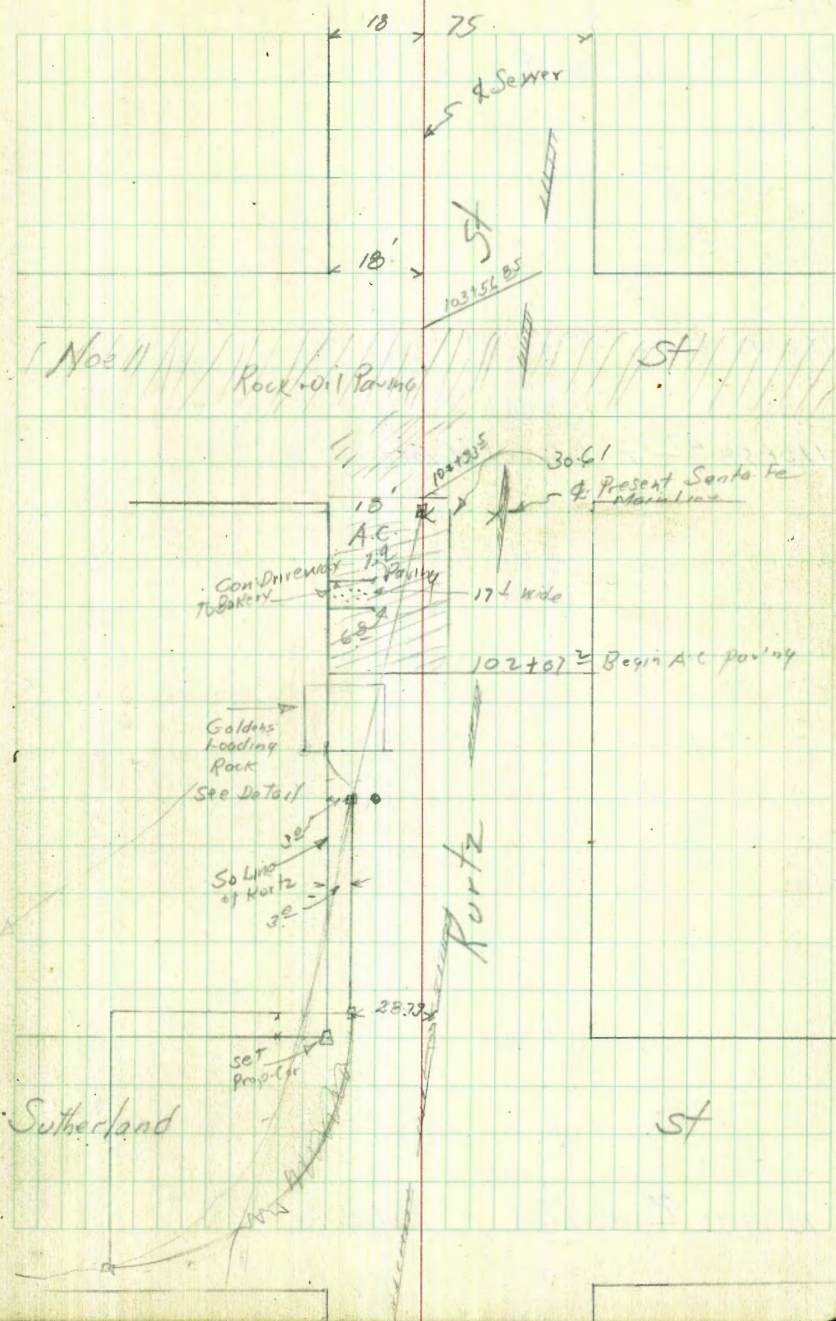 18 75
℄ Sewer
St
18'
103+56.85
Noell St
Rock + Oil Paving
30.61
18'
℄ Present Santa Fe
Mainline
A.C.
7.9
Paving
Con Driveway
To Bakery
17± wide
6.8
102+07.2 Begin A.C. paving
Goldens
Loading
See Detail
3.0
So Line
of Kurtz
3.0
Kurtz
28.79
set
Prop. Cor
Sutherland St